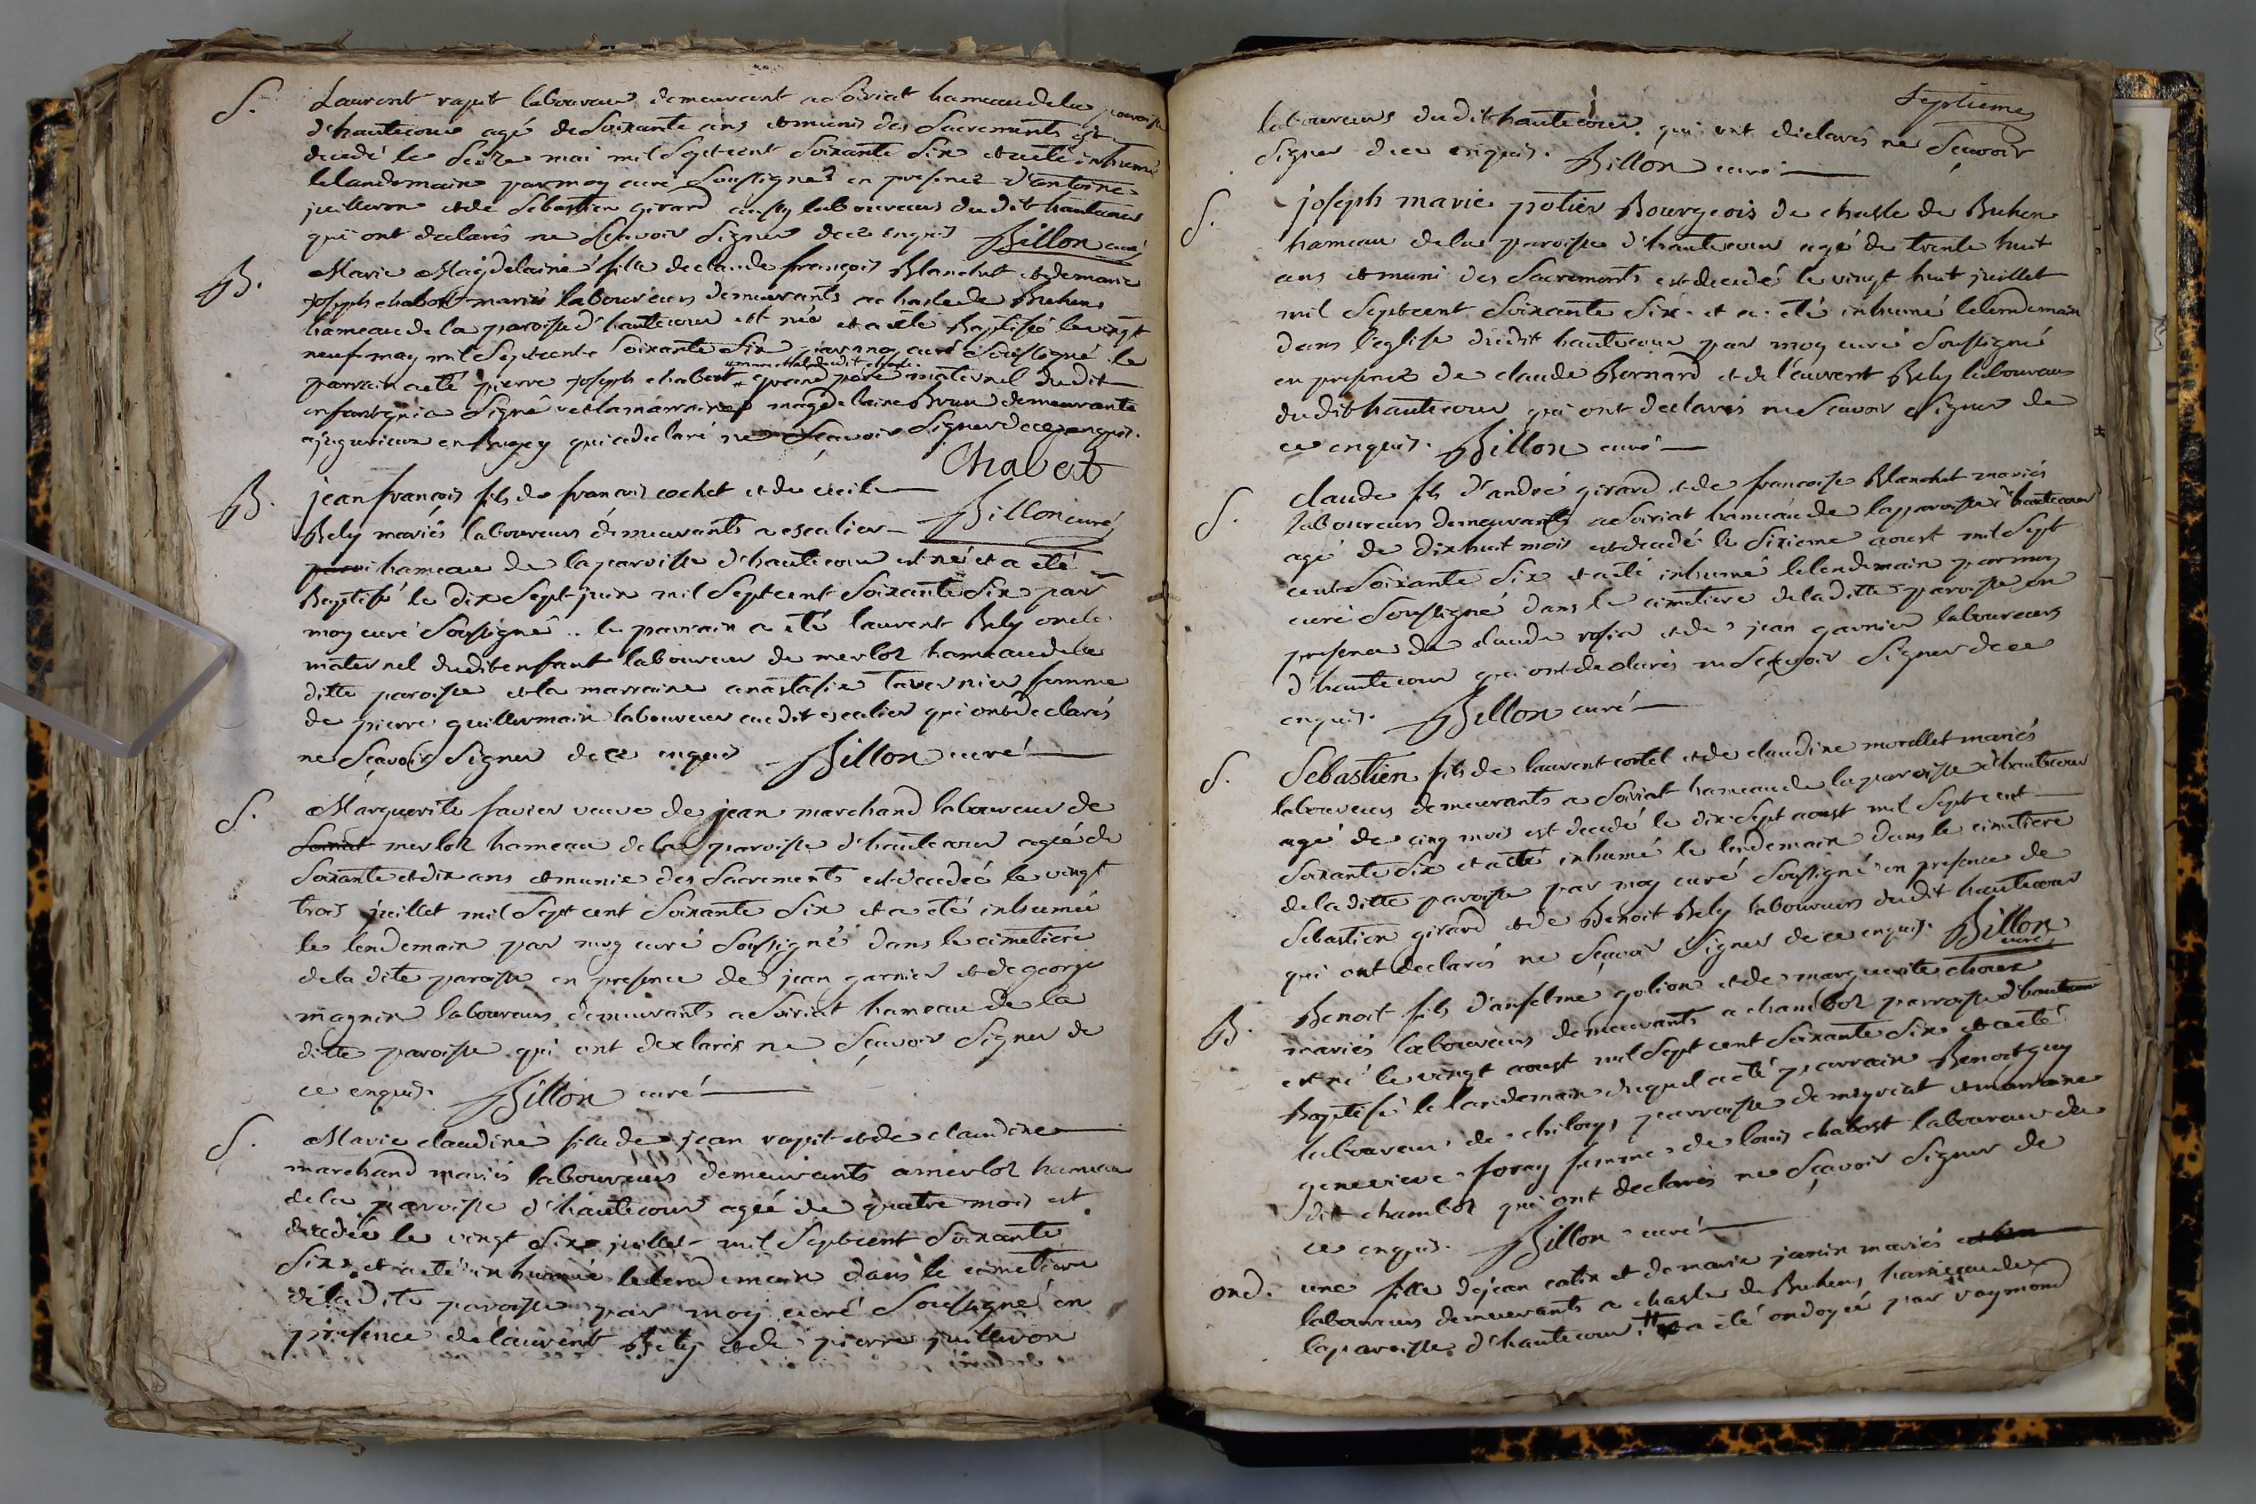 S. Laurent rapit laboureur demeurant a Soiriat hameau de la paroisse
d'hautecour agé de Soixante ans et munis des Sacrements est
decedé le Seize mai mil Sept cent Soixante Six et a eté inhumé
le landemain par moy curé Soussigné en presence d'antoine
juilleron et de Sebastien girard aussy laboureurs dudit hautecour
qui ont declarés ne Scavoir Signer de ce enquis Billon curé
B. Marie Magdelaine fille de claude françois Blanchet et de marie
joseph chabot mariés laboureurs demeurants a chasle de Buhen
hameau de la paroisse d'hautecour est née et a eté Baptisée le vingt
neuf may mil Sept cent Soixante Six par moy curé Soussigné le
parrain a eté pierre joseph chabert grand pere maternel dudit
enfant qui a Signé et la marraine magdelaine Brun demeurante
a jugurieux en Bugey qui a declaré ne Scavoir Signer de ce enquis.
Chabert
B. jean françois fils de francois cochet et de cecile
Bely mariés laboureurs demeurants a escalier Billon curé
paroi hameau de la paroisse d'hautecour est né et a eté
Baptisé le dix Sept juin mil Sept cent Soixante Six par
moy curé Soussigné .. le parrain a eté laurent Bely oncle
maternel dudit enfant laboureur de merloz hameau de la
ditte paroisse et la marraine anastasie tavernier femme
de pierre guillermain laboureur audit escalier qui ont declarés
ne Sçavoir Signer de ce enquis Billon curé
S. Marguerite favier veuve de jean marchand laboureur de
Soiriat merloz hameau de la paroisse d'hautecour agée de
Soixante et dix ans et munie des Sacrements est decedée le vingt
trois juillet mil Sept cent Soixante Six et a eté inhumée
le lendemain par moy curé Soussigné dans le cimetiere
de la dite paroisse en presence de jean garnier et de george
magnin laboureurs demeurants a Soiriat hameau de la
ditte paroisse qui ont declarés ne Sçavoir Signer de
ce enquis. Billon curé
S. Marie claudine fille de jean rapit et de claudine
marchand mariés laboureurs demeurants a merloz hameau
de la paroisse d'hautecour agée de quatre mois est
decedée le vingt Six juillet mil Sept cent Soixante
Six et a eté inhumée le lendemain dans le cimetiere
de la dite paroisse par moy curé Soussigné en
presence de laurent Bely et de pierre juilleron
Septieme
laboureurs dudit hautecour qui ont declarés ne Sçavoir
Signer de ce enquis. Billon curé
S. joseph marie potier Bourgeois de chasle de Buhen
hameau de la paroisse d'hautecour agé de trente huit
ans et muni des Sacrements est decedé le vingt huit juillet
mil Sept cent Soixante Six et a eté inhumé le lendemain
dans l'eglise dudit hautecour par moy curé Soussigné
en presence de claude Bernard et de laurent Bely laboureurs
dudit hautecour qui ont declarés ne Scavoir Signer de
ce enquis. Billon curé
S. claude fils d'andré girard et de francoise Blanchet mariés
laboureurs demeurants a Soiriat hameau de la paroisse d'hautecour
agé de dix huit mois est decedé le Sixieme aoust mil Sept
cent Soixante Six et a eté inhumé le lendemain par moy
curé Soussigné dans le cimetiere de la ditte paroisse en
presence de claude rosia et de jean garnier laboureurs
d'hautecour qui ont declarés ne Sçavoir Signer de ce
enquis. Billon curé
S. Sebastien fils de laurent cortel et de claudine morellet mariés
laboureurs demeurants a Soiriat hameau de la paroisse d'hautecour
agé de cinq mois est decedé le dix Sept aoust mil Sept cent
Soixante Six et a eté inhumé le lendemain dans le cimetiere
de la ditte paroisse par moy curé Soussigné en presence de
Sebastien girard et de Benoit Bely laboureurs dudit hautecour
qui ont declarés ne Sçavoir Signer de ce enquis. Billon
curé
B. Benoit fils d'anselme golion et de marguerite choux
mariés laboureurs demeurants a chamboz parroisse d'hautecour
est né le vingt aoust mil Sept cent Soixante Six et a eté
Baptisé le landemain duquel a eté parrain Benoit guy
laboureur de chiloup parroisse de meyriat et marraine
genevieve foray femme de louis chabost laboureur du
dit chamboz qui ont declarés ne Sçavoir Signer de
ce enquis. Billon curé
ond. une fille de jean catin et de marie janin mariés
laboureurs demeurants a chasle de Buhen, hameau de
la paroisse d'hautecour a eté ondoyée par raymond